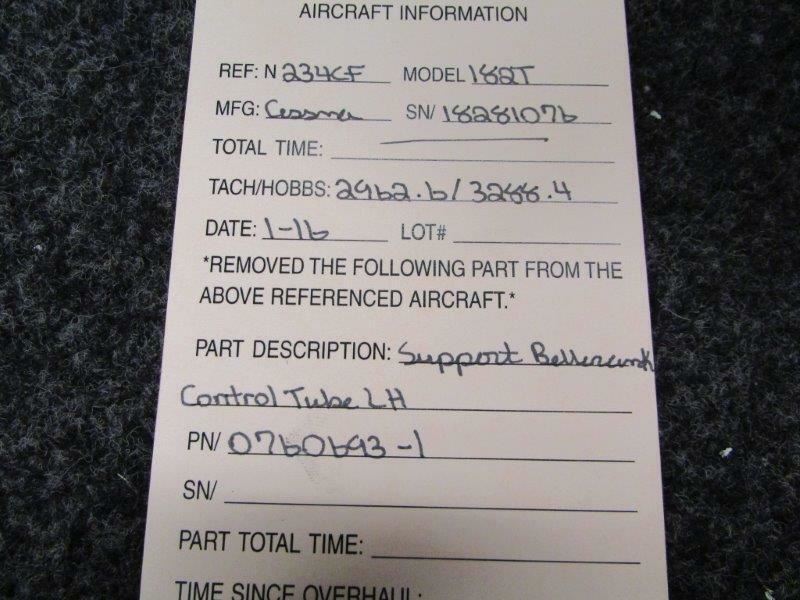 AIRCRAFT INFORMATION
REF: N 234CF MODEL 182T
MFG: Cessna SN/ 18281076
TOTAL TIME:
TACH/HOBBS: 2962.6/3288.4
DATE: 1-16 LOT#
*REMOVED THE FOLLOWING PART FROM THE
ABOVE REFERENCED AIRCRAFT.*
PART DESCRIPTION: Support Bellcrank
Control Tube LH
PN/ 0760693-1
SN/
PART TOTAL TIME:
TIME SINCE OVERHAUL: